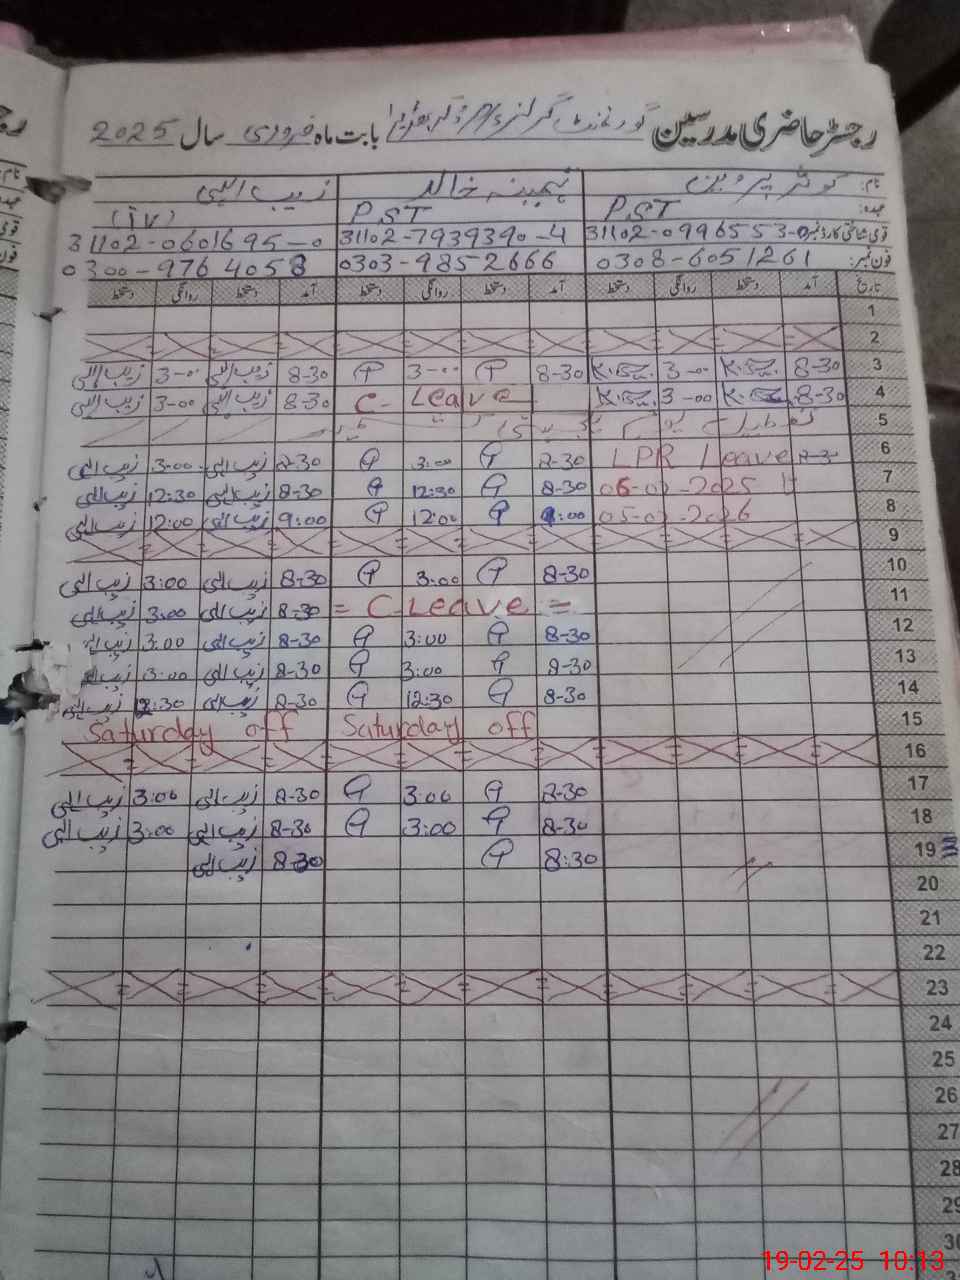 رجسٹر حاضری مدرسین گورنمنٹ گرلز بابت ماہ فروری سال 2025
نام: کوثر پروین تہمینہ خالد زیب الہی
عہدہ: PST PST (iv)
قومی شناختی کارڈ نمبر 31102-0996553-0 31102-7939390-4 31102-0601695-0
فون نمبر: 0308-6051261 0303-9852666 0300-9764058
تاریخ آمد دستخط روانگی دستخط آمد دستخط روانگی دستخط آمد دستخط روانگی دستخط
1
2
3 8-30 3-00 8-30 3-00 8-30 زیب الہی 3-00 زیب الہی
4 8-30 3-00 C- Leave 8-30 زیب الہی 3-00 زیب الہی
5 تعطیل
6 2-30 LPR Leave 2-30 3:00 2-30 زیب الہی 3:00 زیب الہی
7 8-30 12:30 8-30 زیب الہی 12:30 زیب الہی
8 12:00 9:00 زیب الہی 12:00 زیب الہی
9
10 8-30 3:00 8-30 زیب الہی 3:00 زیب الہی
11 = C-Leave = 8-30 زیب الہی 3:00 زیب الہی
12 8-30 3:00 8-30 زیب الہی 3:00
13 8-30 3:00 8-30 زیب الہی 3:00 زیب الہی
14 8-30 12:30 8-30 زیب الہی 12:30 زیب الہی
15 Saturday off Saturday off
16
17 8-30 3:00 8-30 زیب الہی 3:00 زیب الہی
18 8-30 3:00 8-30 زیب الہی 3:00 زیب الہی
19 8:30 8-30 زیب الہی
20
21
22
23
24
25
26
27
28
29
30
19-02-25 10:13